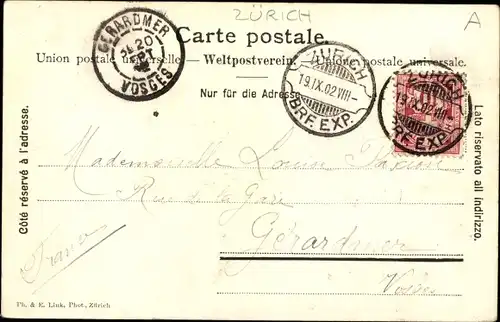 ZÜRICH
A
Carte postale.
Union postale universelle. — Weltpostverein. — Unione postale universale.
Nur für die Adresse.
GÉRARDMER
20
VOSGES
ZÜRICH
19.IX.02.VIII–
BRF. EXP.
ZÜRICH
19.IX.02.VIII–
BRF. EXP.
Côté réservé à l'adresse.
Lato riservato all indirizzo.
Mademoiselle Louise
Rue de la Gare
Gérardmer
Vosges
France
Ph. & E. Link, Phot., Zürich